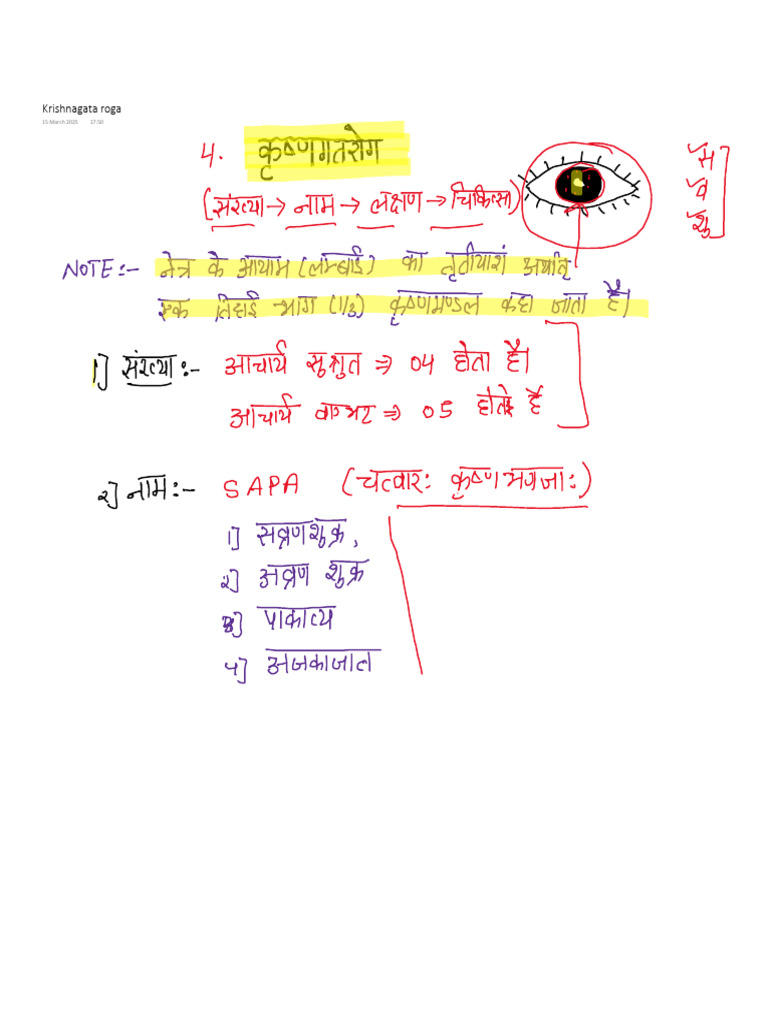 Krishnagata roga
15 March 2025 17:50
4. कृष्णगतरोग
(संख्या → नाम → लक्षण → चिकित्सा)
स
व
शु
NOTE :- नेत्र के आयाम (लम्बाई) का तृतीयाशं अर्थात्
एक तिहाई भाग (1/3) कृष्णमण्डल कहा जाता है।
1] संख्या :- आचार्य सुश्रुत ⇒ 04 होता है।
आचार्य वाग्भट ⇒ 05 है
२] नाम :- SAPA (चत्वारः कृष्णभागजाः)
1] सव्रणशुक्र,
२] अव्रण शुक्र
3] पाकात्य
4] अजकाजात